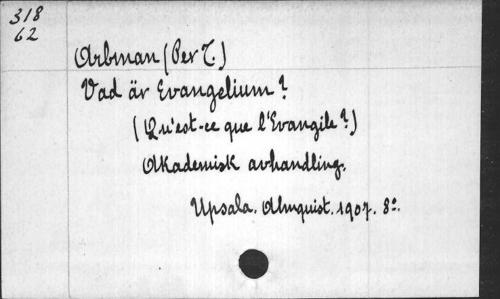 318
62
Arbman (Per T.)
Vad är Evangelium?
(Qu'est-ce que l'Evangile?)
Akademisk avhandling.
Upsala. Almquist. 1907. 8º.